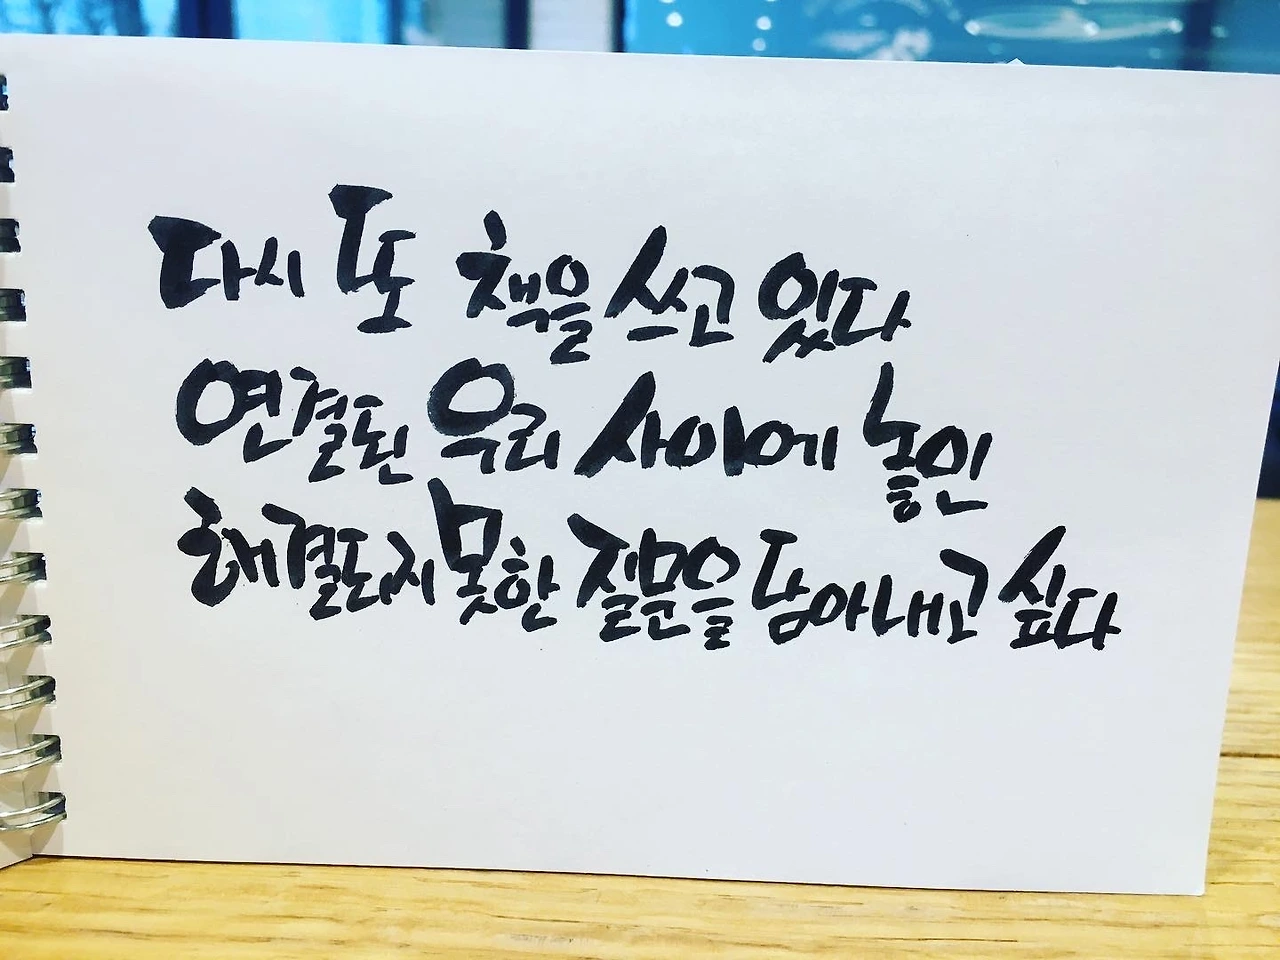 다시 또 책을 쓰고 있다
연결된 우리 사이에 놓인
해결되지 못한 질문을 담아내고 싶다